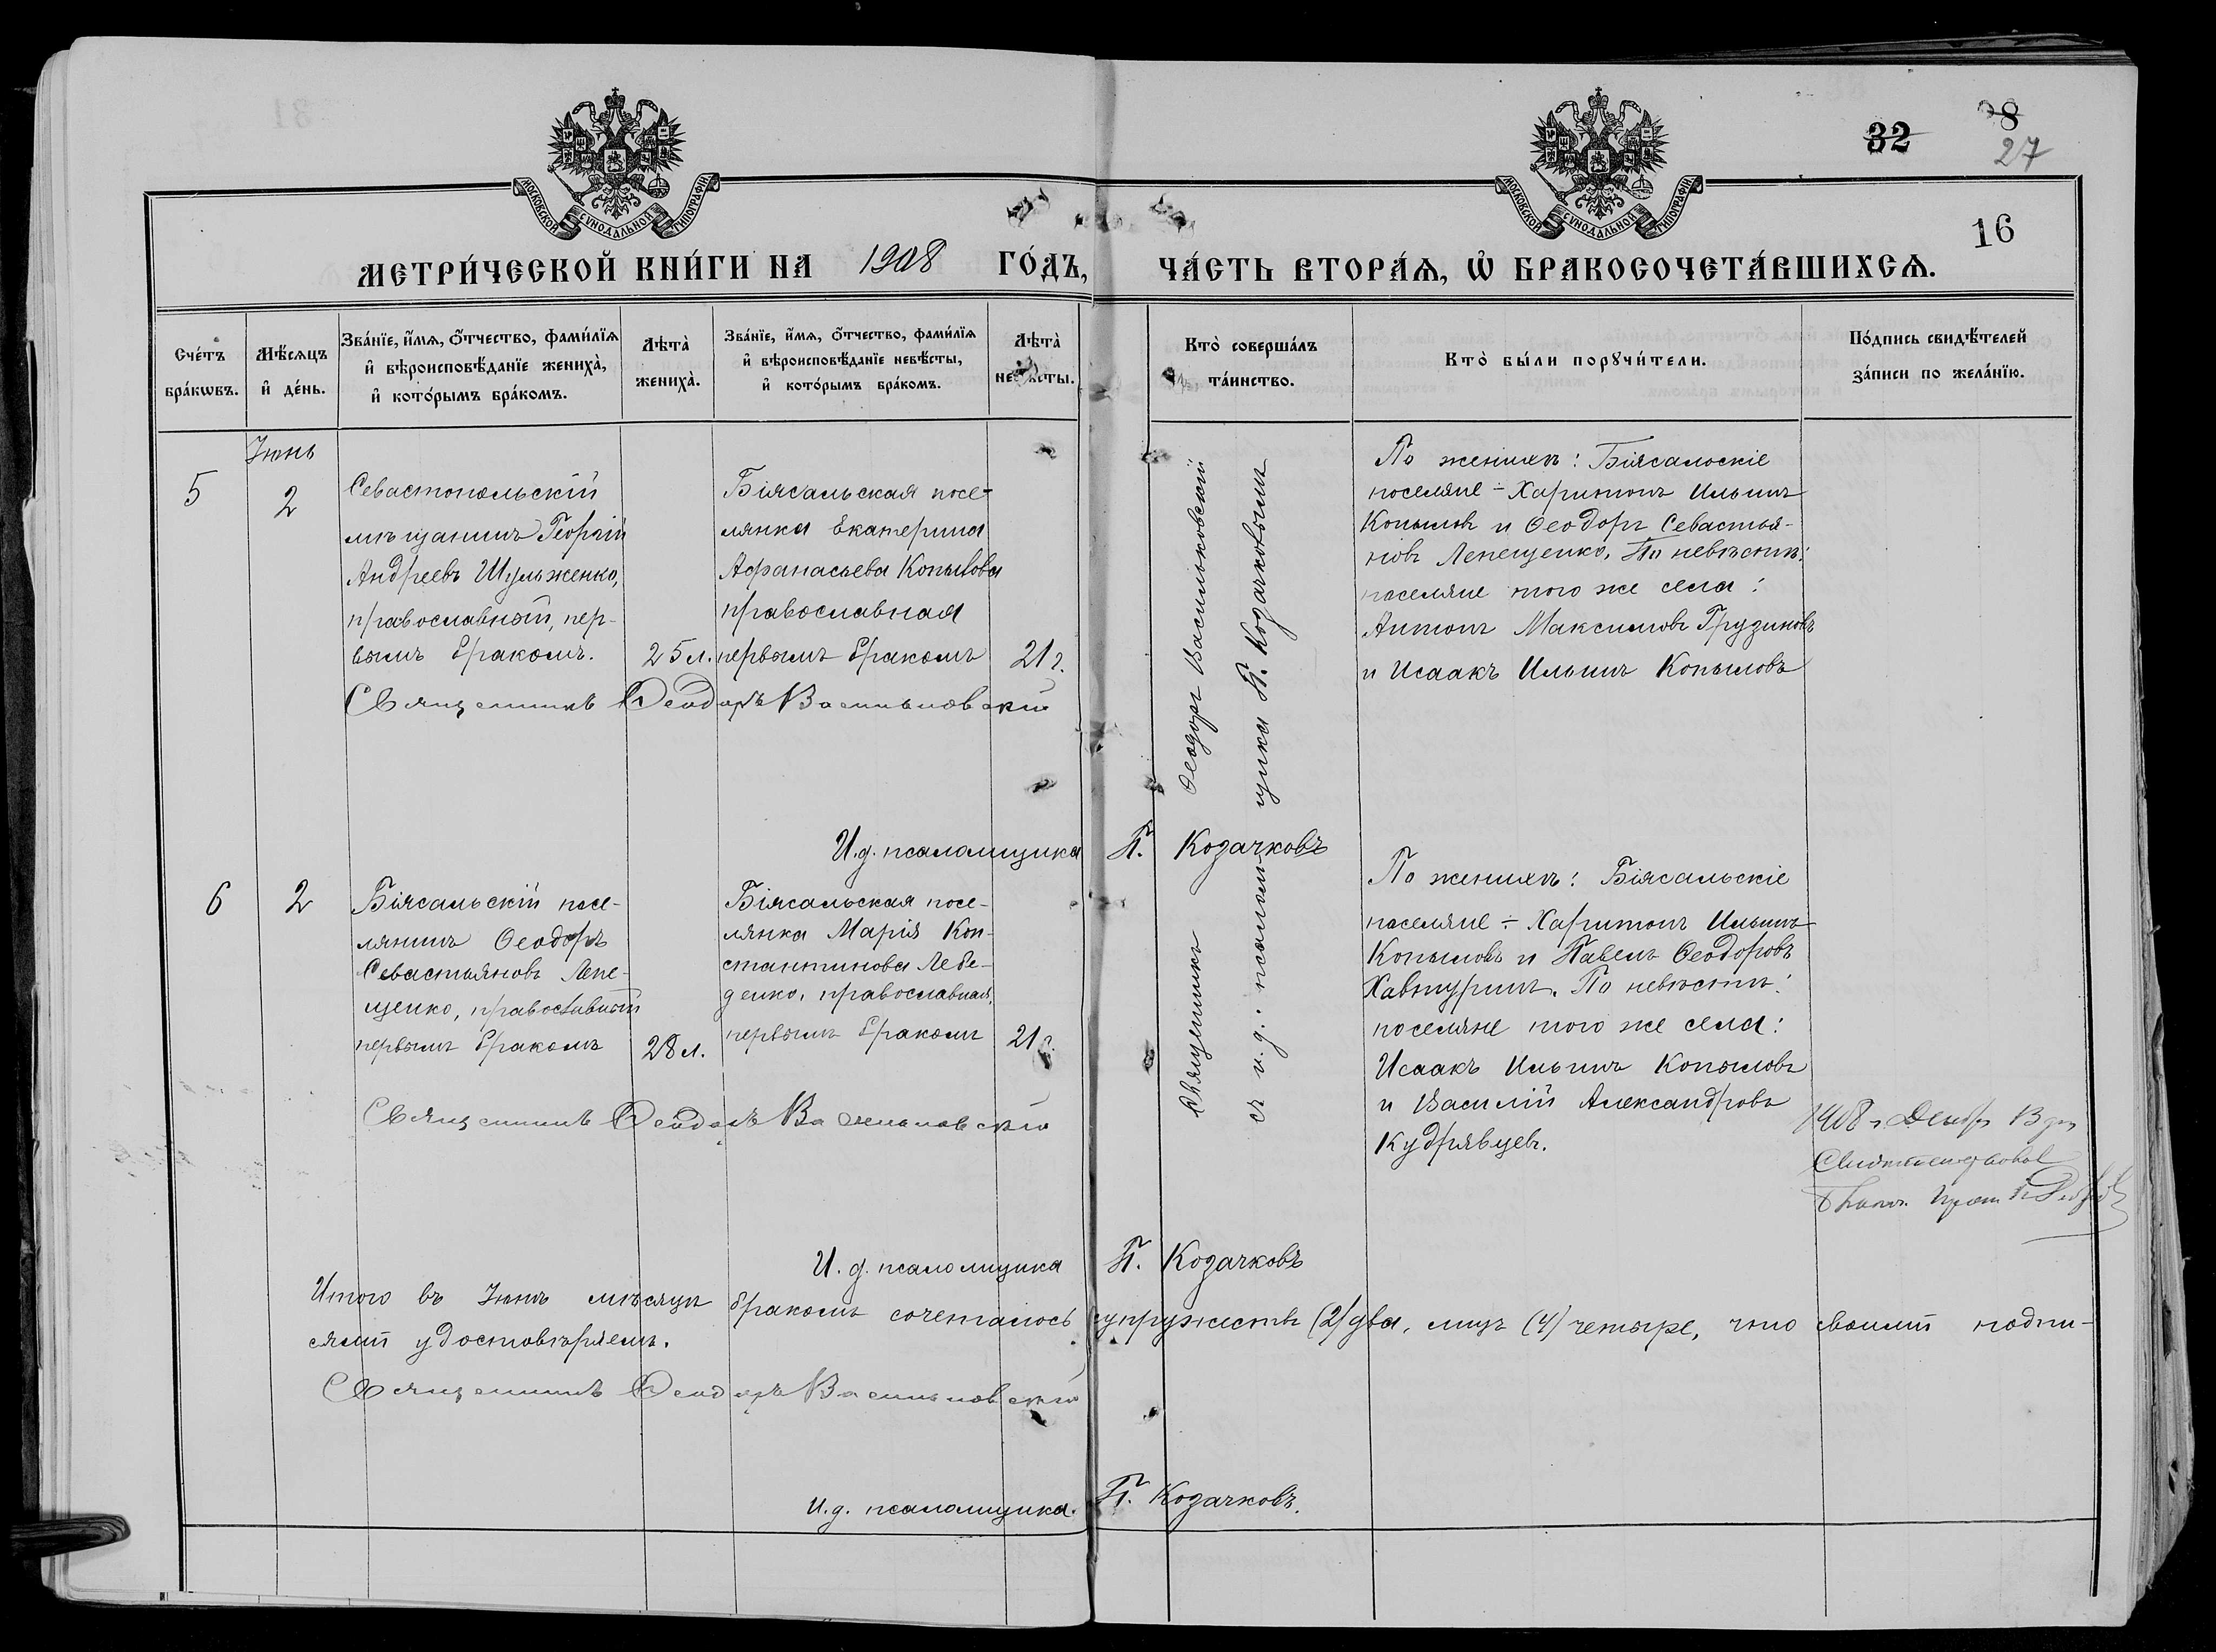 32
8
27
16
МОСКОВСКОЙ СѴНОДАЛЬНОЙ ТИПОГРАФІИ
МОСКОВСКОЙ СѴНОДАЛЬНОЙ ТИПОГРАФІИ
МЕТРИ́ЧЕСКОЙ КНИ́ГИ НА 1908 ГО́ДЪ, ЧА́СТЬ ВТОРА́Ѧ, Ѡ҆ БРАКОСОЧЕТА́ВШИХСѦ.
Сче́тъ
бра́кѡвъ.
Мѣ́сѧцъ
и҆ де́нь.
Зва́нїе, и҆́мѧ, ѻ҆́тчество, фами́лїѧ
и҆ вѣроисповѣ́данїе жениха̀,
и҆ кото́рымъ бра́комъ.
Лѣта̀
жениха̀.
Зва́нїе, и҆́мѧ, ѻ҆́тчество, фами́лїѧ
и҆ вѣроисповѣ́данїе невѣ́сты,
и҆ кото́рымъ бра́комъ.
Лѣта̀
невѣ́сты.
Кто̀ соверша́лъ
та́инство.
Кто̀ бы́ли порꙋчи́тели.
По́дпись свидѣ́телей
за́писи по жела́нїю.
Іюнь
5
2
Севастопольскій
мѣщанинъ Георгій
Андреевъ Шульженко,
православный, пер-
вымъ бракомъ.
25 л.
Біясальская посе-
лянка Екатерина
Афанасьева Копылова
православная
первымъ бракомъ
21 г.
Священникъ Ѳеодоръ Васильковскій
По женихѣ: Біясальскіе
поселяне - Харитонъ Ильинъ
Копыловъ и Ѳеодоръ Севастья-
новъ Лепещенко, По невѣстѣ:
поселяне того же села:
Антонъ Максимовъ Грузиновъ
и Исаакъ Ильинъ Копыловъ
И.д. псаломщика П. Козачковъ
Священникъ Ѳеодоръ Васильковскій
съ и.д. псаломщика П. Козачковымъ
6
2
Біясальскій посе-
лянинъ Ѳеодоръ
Севастьяновъ Лепе-
щенко, православный
первымъ бракомъ
28 л.
Біясальская посе-
лянка Марія Кон-
стантинова Лебе-
денко, православная,
первымъ бракомъ
21 г.
Священникъ Ѳеодоръ Васильковскій
По женихѣ: Біясальскіе
поселяне - Харитонъ Ильинъ
Копыловъ и Павелъ Ѳеодоровъ
Хавтуринъ. По невѣстѣ:
поселяне того же села:
Исаакъ Ильинъ Копыловъ
и Василій Александровъ
Кудрявцевъ.
1908 г. Декабр 13 дня
Свидѣтельствовал
И. д. псаломщика П. Козачковъ
Итого въ Іюнѣ мѣсяцѣ бракомъ сочеталось супружествъ (2) два, лицъ (4) четыре, что своими подпи-
сями удостовѣряемъ.
Священникъ Ѳеодоръ Васильковскій
И.д. псаломщика П. Козачковъ.